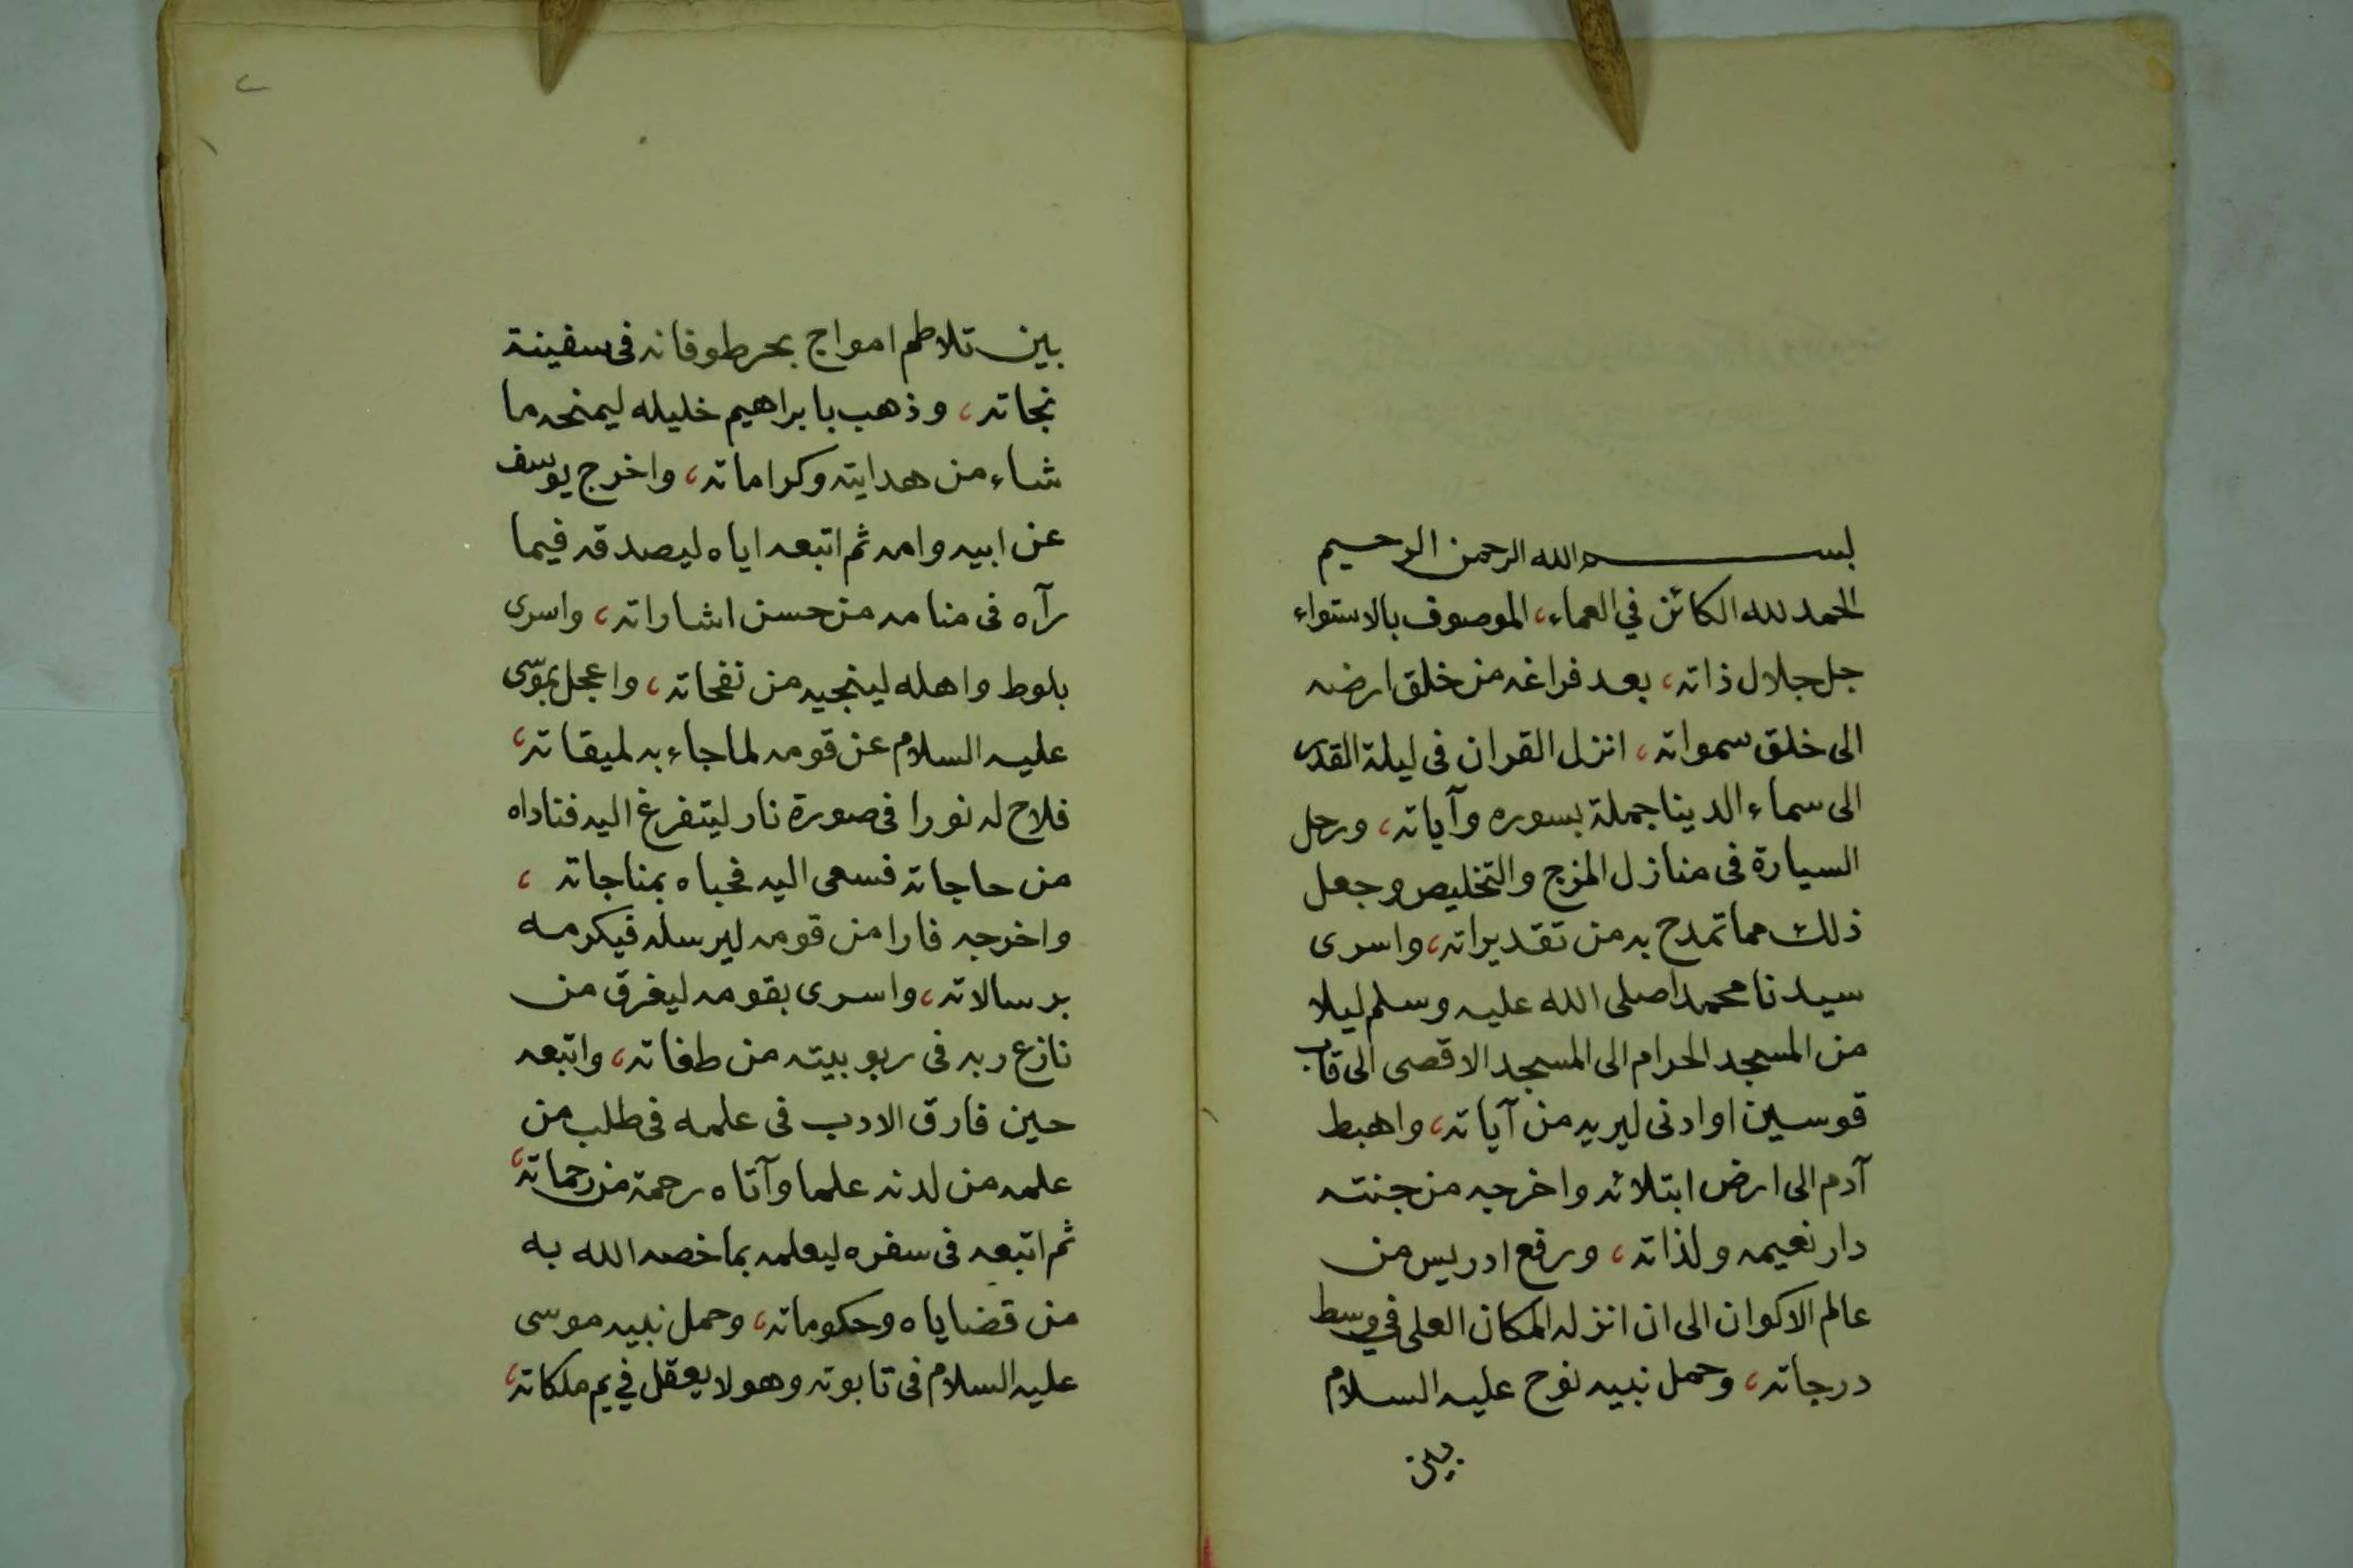 بسم الله الرحمن الرحيم
الحمد لله الكائن في العماء، الموصوف بالاستواء
جل جلال ذاته، بعد فراغه من خلق ارضه
الى خلق سمواته، انزل القران فى ليلة القدر
الى سماء الدينا جملة بسوره وآياته، ورحل
السيارة فى منازل المزج والتخليص وجعل
ذلك مما تمدح به من تقديراته، واسرى
سيدنا محمدا صلى الله عليه وسلم ليلا
من المسجد الحرام الى المسجد الاقصى الى قاب
قوسين او ادنى ليريه من آياته، واهبط
آدم الى ارض ابتلائه واخرجه من جنته
دار نعيمه ولذاته، ورفع ادريس من
عالم الاكوان الى ان انزله المكان العلى في وسط
درجاته، وحمل نبيه نوح عليه السلام
بين
٢
بين تلاطم امواج بحر طوفانه فى سفينة
نجاته، وذهب بابراهيم خليله ليمنحه ما
شاء من هدايته وكراماته، واخرج يوسف
عن ابيه وامه ثم اتبعه اياه ليصدقه فيما
رآه فى منامه من حسن اشاراته، واسرى
بلوط واهله لينجيه من نفحاته، واعجل بموسى
عليه السلام عن قومه لما جاء به لميقاته،
فلاح له نورا فى صورة نار ليتفرغ اليه فناداه
من حاجاته فسعى اليه فحباه بمناجاته،
واخرجه فارا من قومه ليرسله فيكرمه
برسالاته، واسرى بقومه ليغرق من
نازع ربه فى ربوبيته من طغاته، واتبعه
حين فارق الادب فى علمه فى طلب من
علمه من لدنه علما وآتاه رحمة من رحماته،
ثم اتبعه فى سفره ليعلمه بما خصه الله به
من قضاياه وحكوماته، وحمل نبيه موسى
عليه السلام فى تابوته وهو لا يعقل في يم ملكاته،